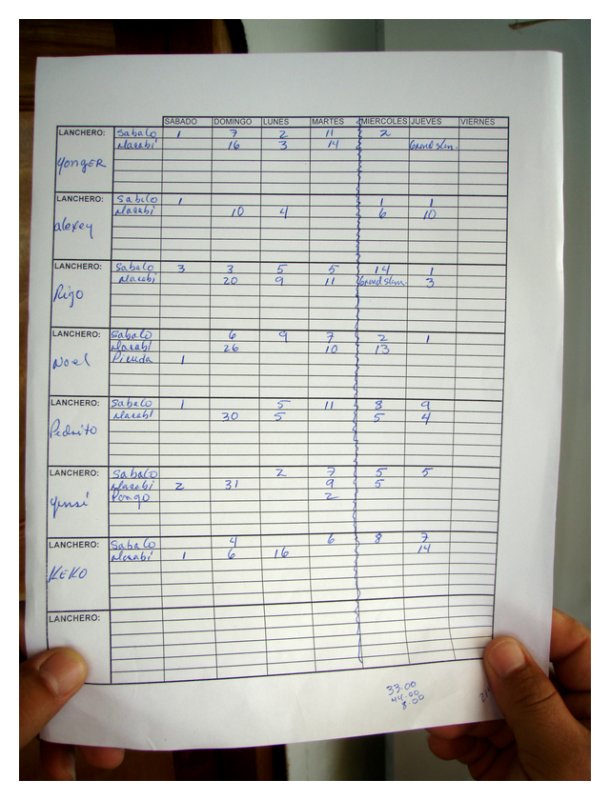 SABADO DOMINGO LUNES MARTES MIERCOLES JUEVES VIERNES
LANCHERO: Sabalo 1 7 2 11 2
Macabi 16 3 14 Grand slam
YongER
LANCHERO: Sabalo 1 1 1
Macabi 10 4 6 10
alexey
LANCHERO: Sabalo 3 3 5 5 14 1
Macabi 20 9 11 Grand slam 3
Rigo
LANCHERO: Sabalo 6 9 7 2 1
Macabi 26 10 13
Noel Picuda 1
LANCHERO: Sabalo 1 5 11 8 9
Macabi 30 5 5 4
Pedrito
LANCHERO: Sabalo 2 7 5 5
Macabi 2 31 9 5
Yensi 2
LANCHERO: Sabalo 4 6 8 7
Macabi 1 6 16 14
KEKO
LANCHERO:
33.00
44.00
8.00